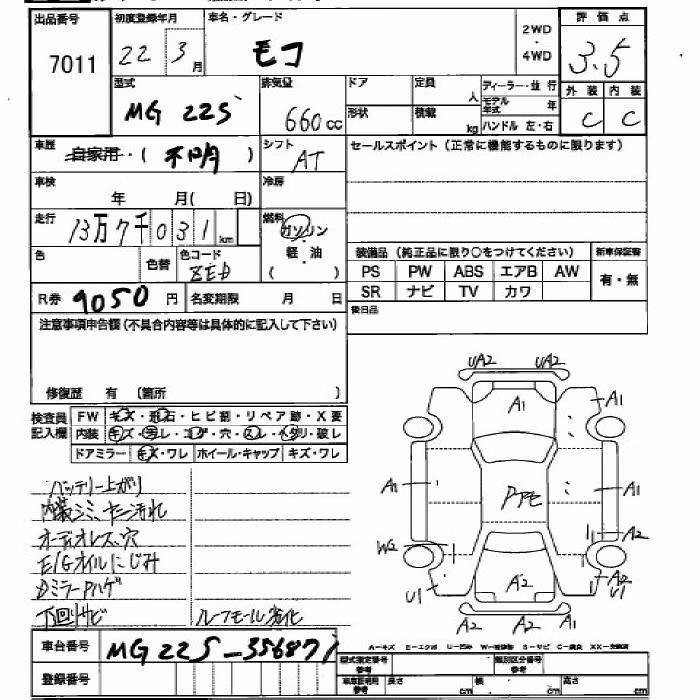 出品番号 7011
初度登録年月 22 3月
車名・グレード モコ
2WD・4WD
評価点 3.5
型式 MG22S
排気量 660cc
ドア
定員 人
ディーラー・並行
モデル年式 年
外装 C 内装 C
形状
積載 kg
ハンドル 左・右
車歴 自家用・(不明)
シフト AT
セールスポイント(正常に機能するものに限ります)
車検 年 月(日)
冷房
走行 13万7千031km
燃料 ガソリン・軽油 ( )
色 色替
色コード ZED
装備品(純正品に限り○をつけてください)
新車保証書 有・無
PS PW ABS エアB AW
SR ナビ TV カワ
R券 9050円
名変期限 月 日
後日品
注意事項申告欄(不具合内容等は具体的に記入して下さい)
修復歴 有(箇所 )
検査員記入欄
FW キズ・飛石・ヒビ割・リペア跡・X要
内装 キズ・汚レ・コゲ・穴・スレ・ヘタリ・破レ
ドアミラー キズ・ワレ ホイール・キャップ キズ・ワレ
バッテリー上がり
内装シミ、ヤニ汚れ
オーディオレス、穴
E/Gオイルにじみ
Dミラーハゲ
下回りサビ
ルーフモール劣化
UA2 UA2
A1 A1
A1 A1
W2 A2
U1 A2 A2 U1
A2 A2
A-キズ E-エクボ U-凹み W-補修跡 S-サビ C-腐食 XX-交換済
車台番号 MG22S-356871
登録番号
型式指定番号 参考
類別区分番号 参考
車庫証明用 参考 長さ cm 幅 cm 高さ cm